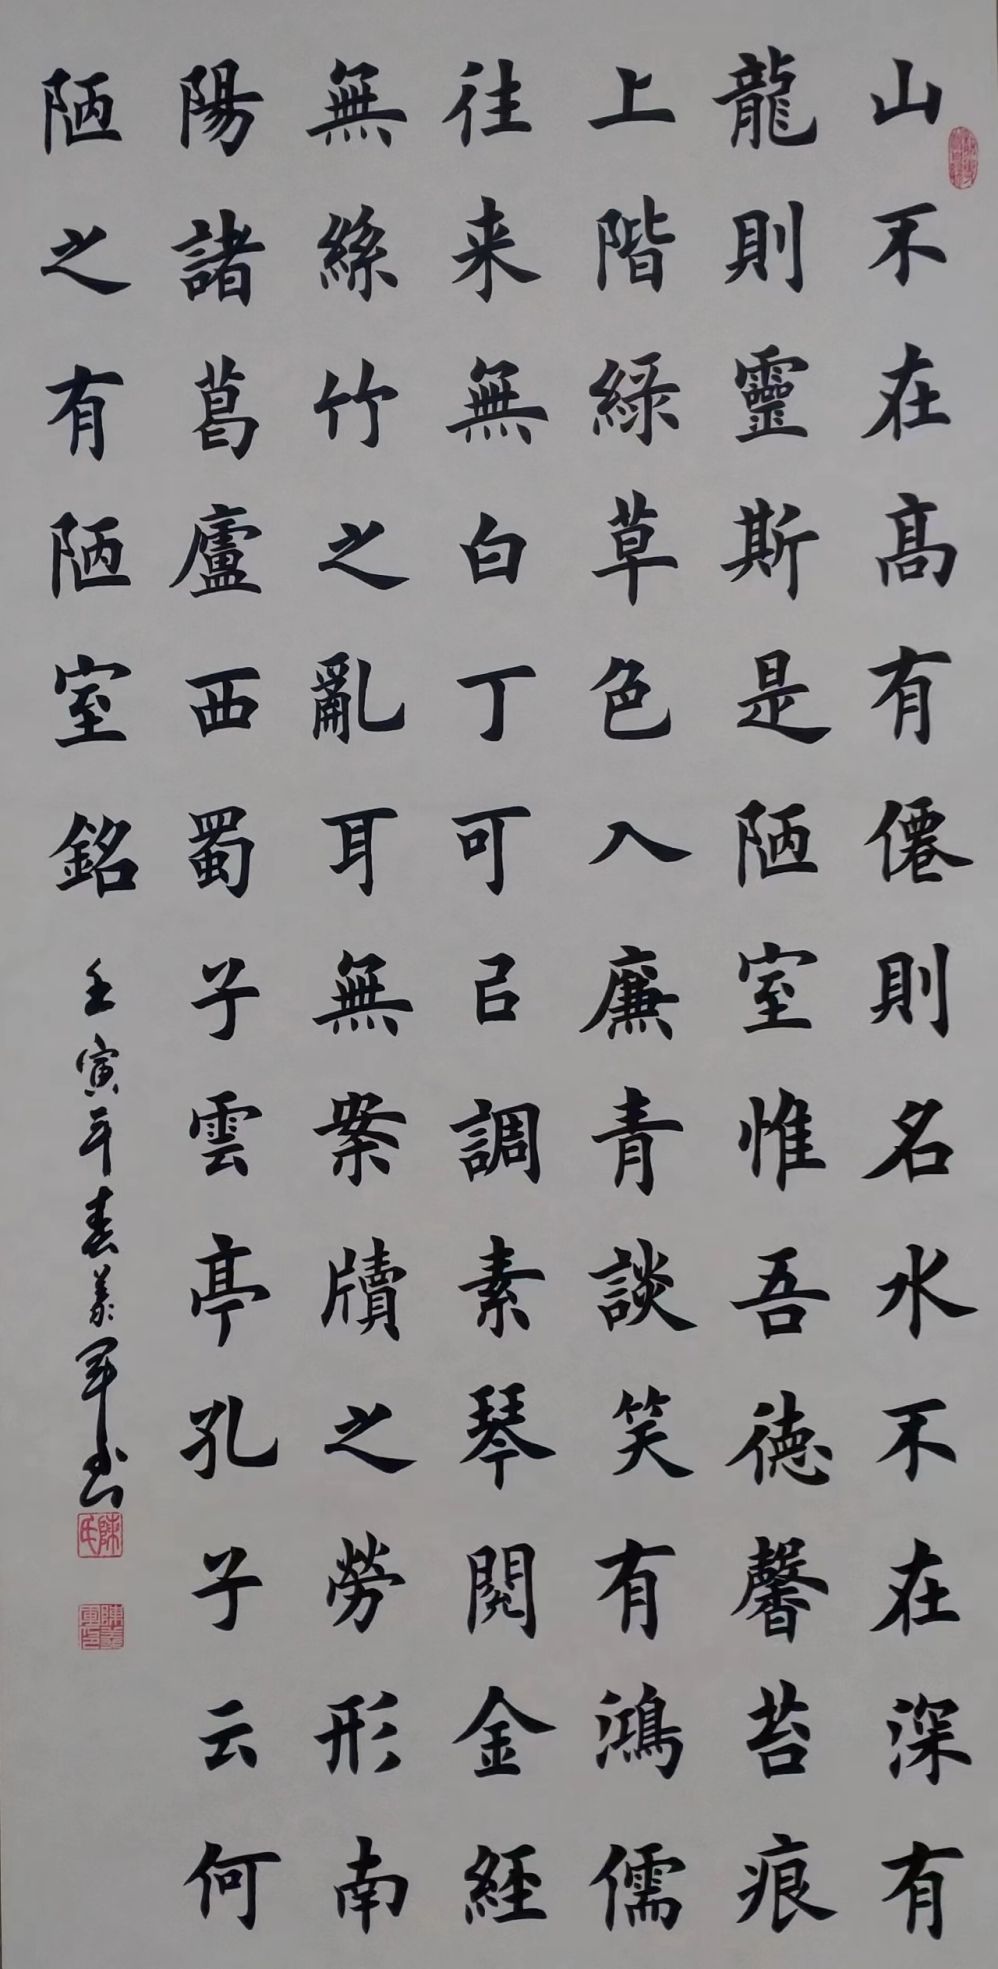 山不在高有僊則名水不在深有
龍則靈斯是陋室惟吾德馨苔痕
上階綠草色入廉青談笑有鴻儒
往来無白丁可㠯調素琴閱金經
無絲竹之亂耳無案牘之勞形南
陽諸葛廬西蜀子雲亭孔子云何
陋之有陋室銘
壬寅年春義軍书
陳氏
陳義軍印